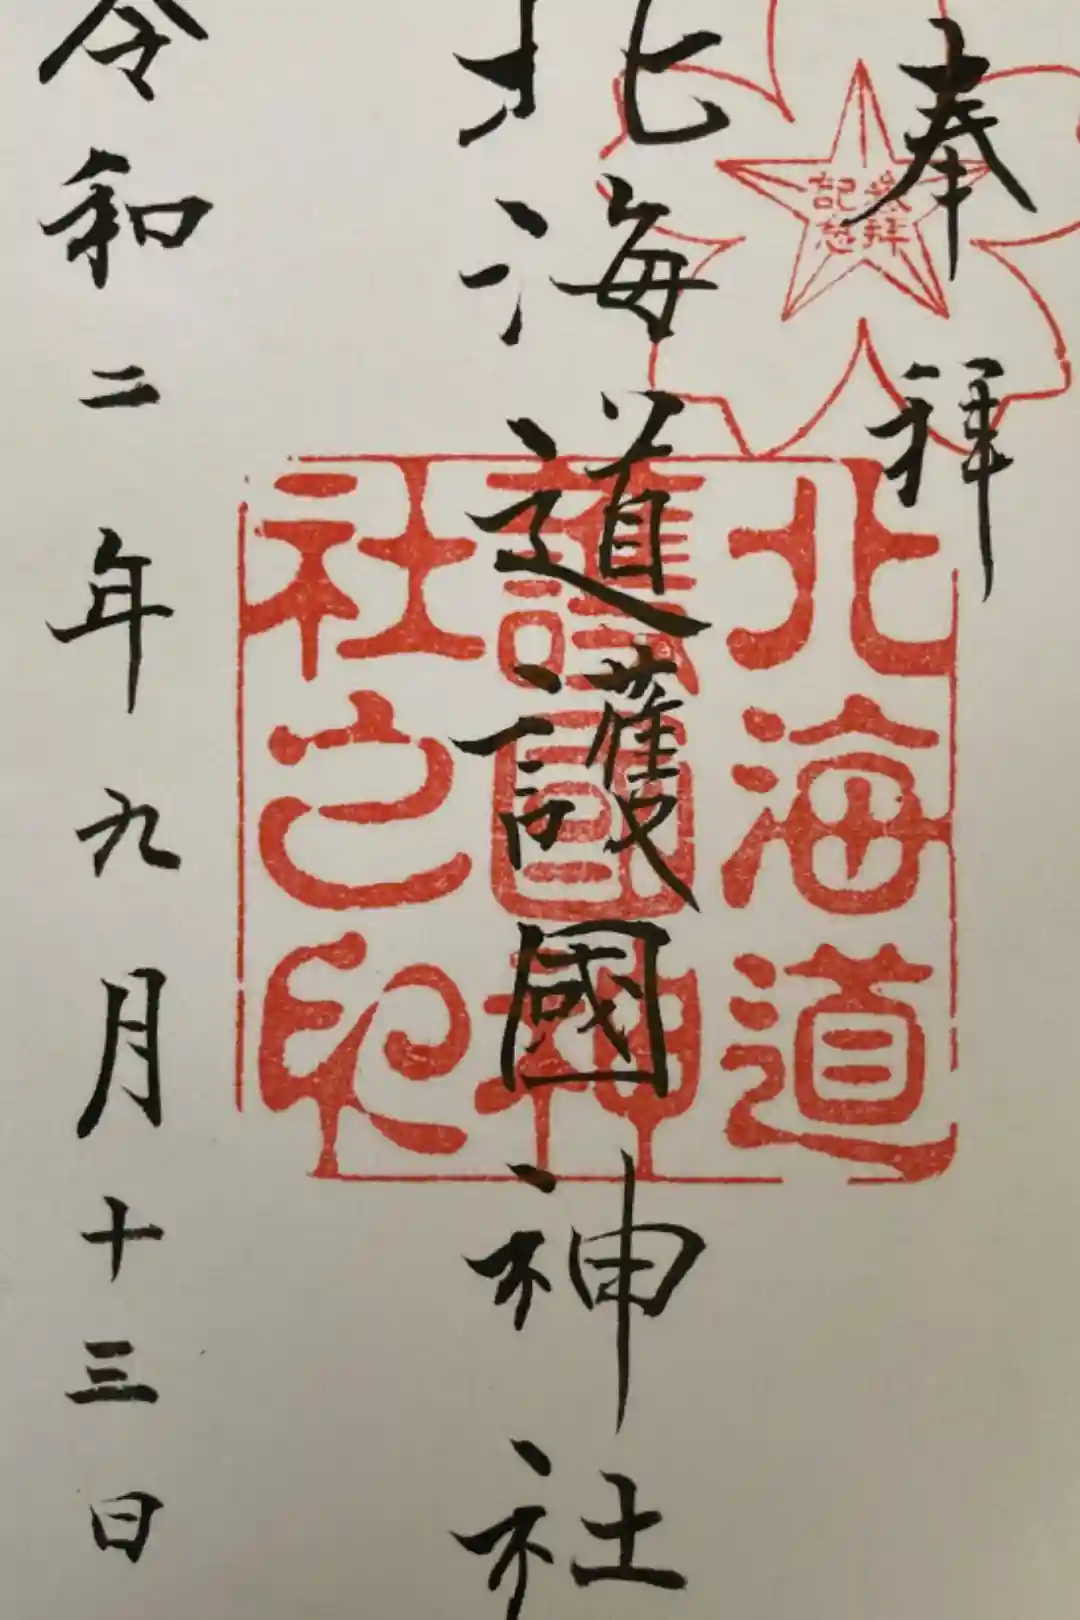 奉拝
参拝
記念
北海道護國神社
北海道
護國神
社之印
令和二年九月十三日